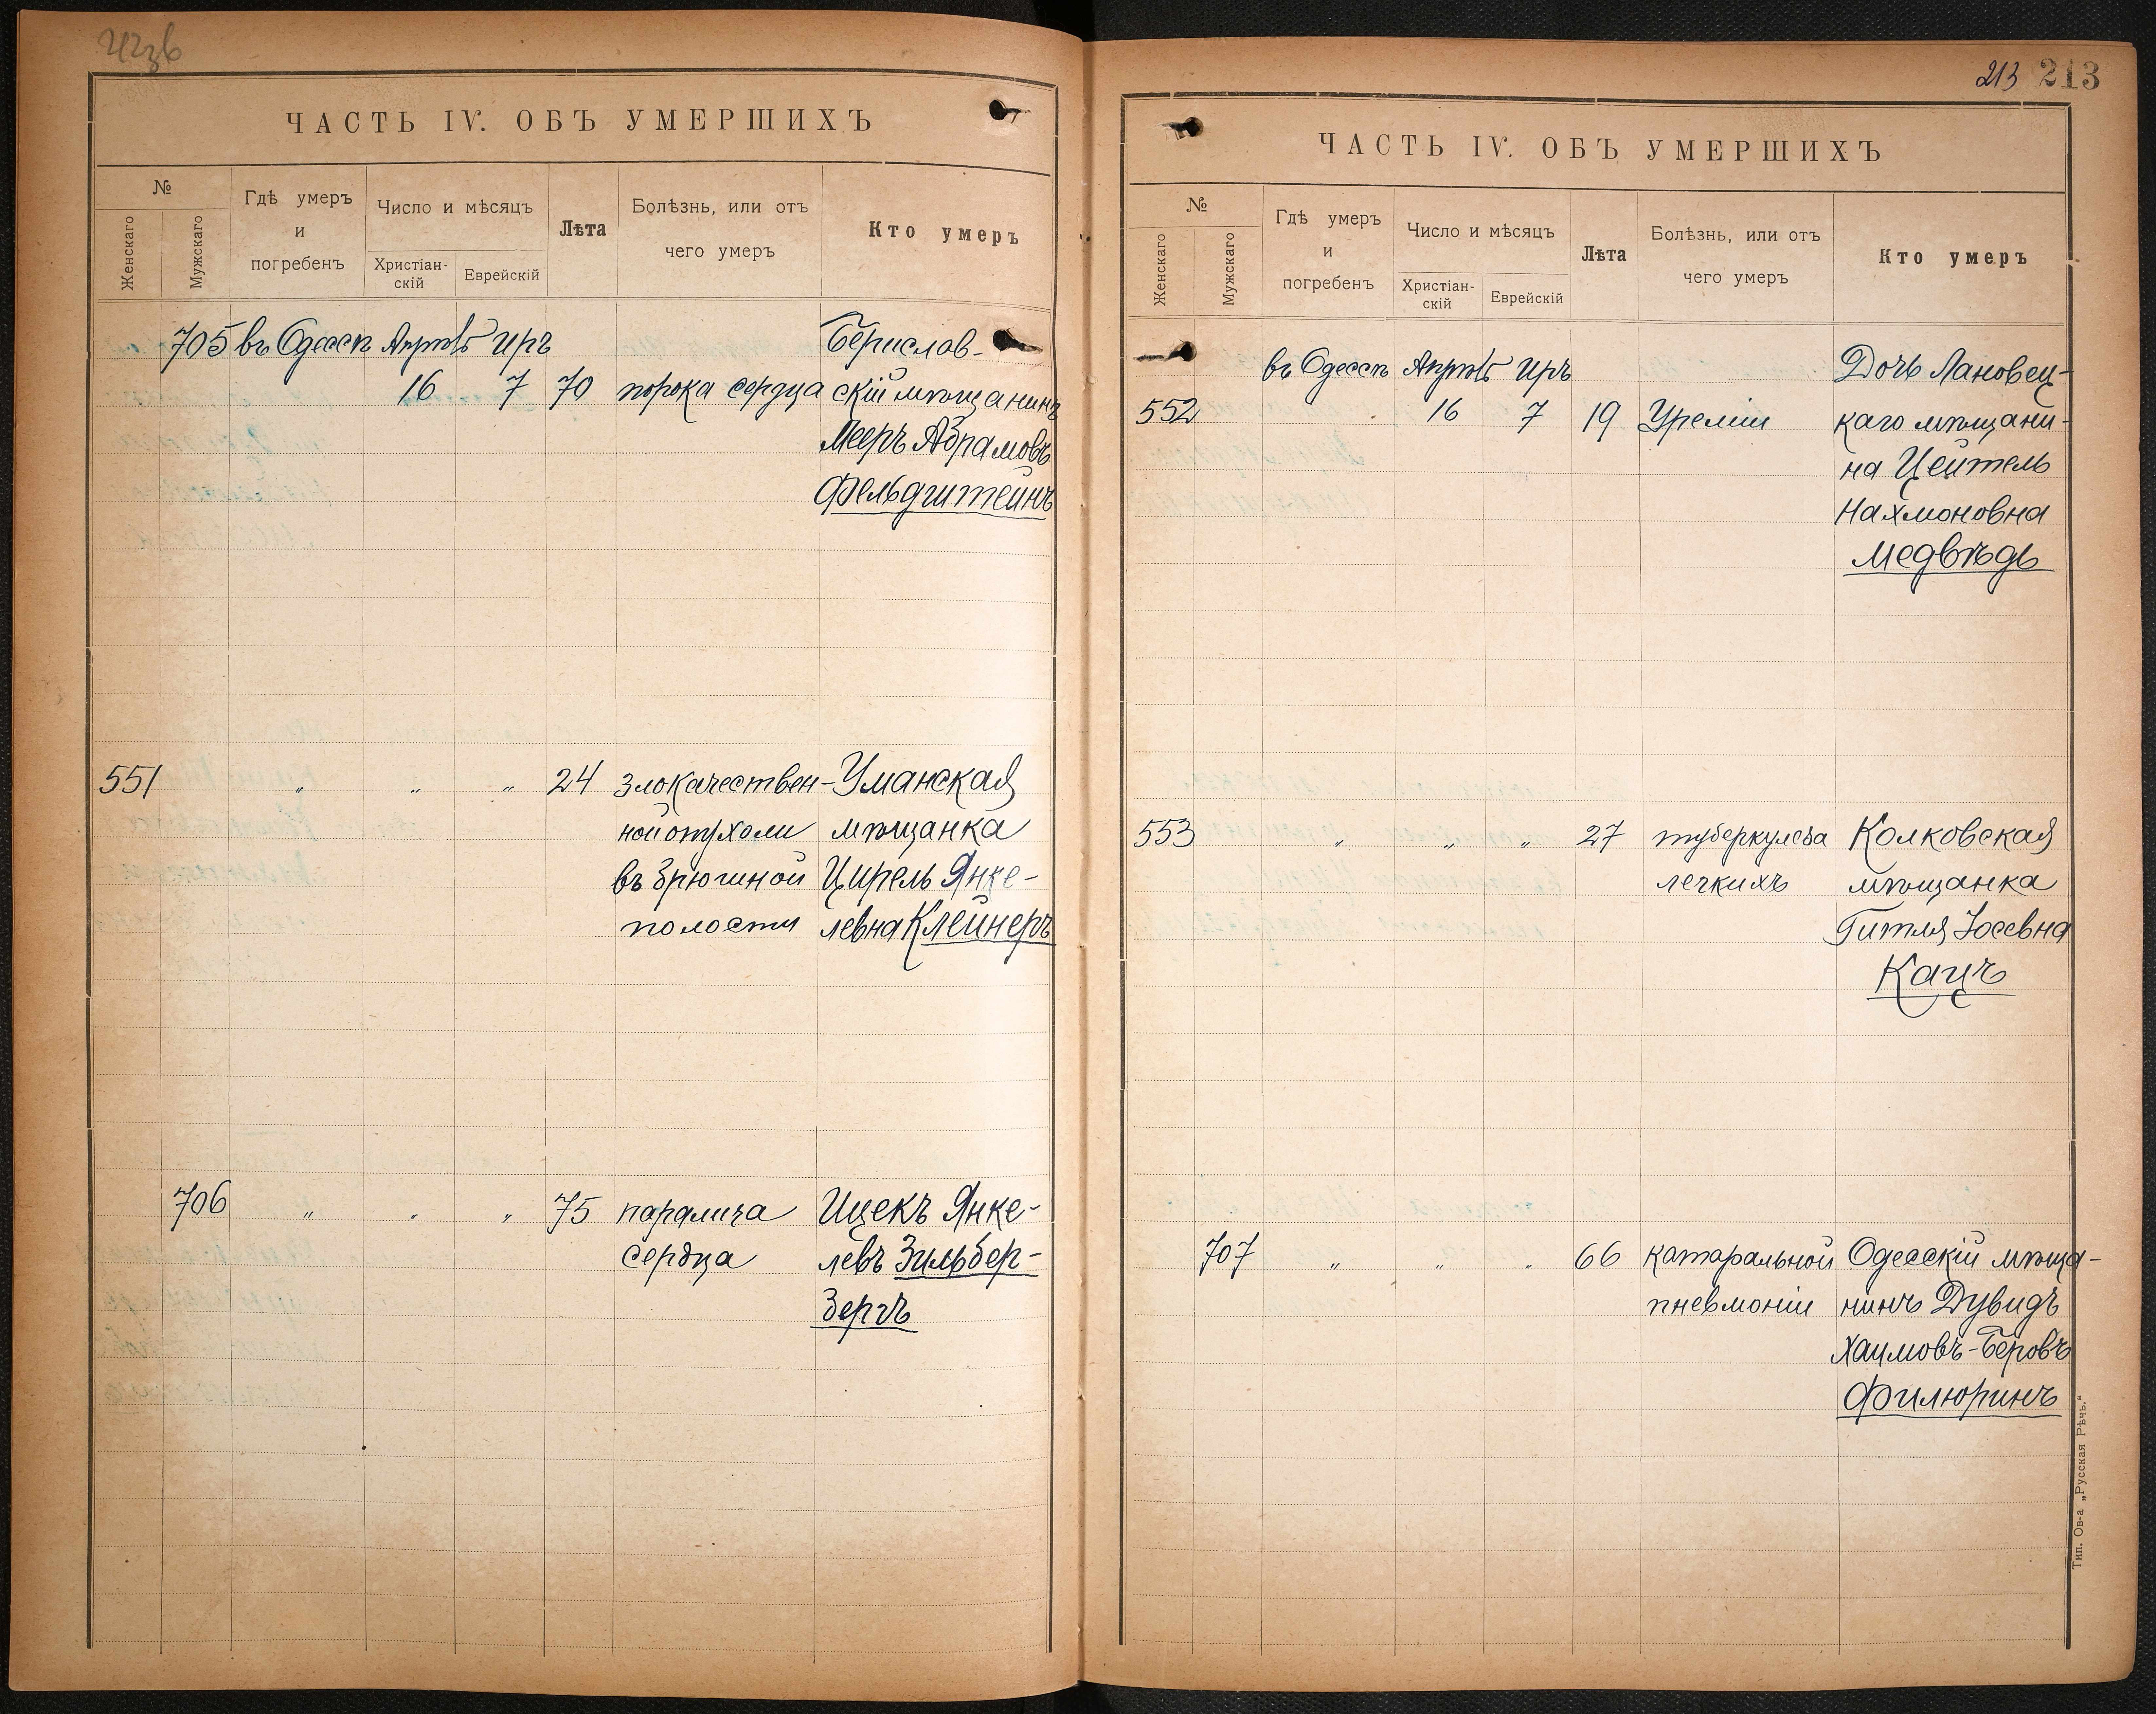 ЧАСТЬ IV. ОБЪ УМЕРШИХЪ
№
Женскаго
Мужскаго
Гдѣ умеръ
и
погребенъ
Число и мѣсяцъ
Христіан-
скій
Еврейскій
Лѣта
Болѣзнь, или отъ
чего умеръ
Кто умеръ
705 въ Одессѣ Апрѣль Иръ Берислав-
16 7 70 порока сердца скій мѣщанинъ
Мееръ Абрамовъ
Фельдштейнъ
551 " " " 24 злокачествен- Уманская
ной опухоли мѣщанка
въ брюшной Цирель Янке-
полости левна Клейнеръ
706 " " " 75 паралича Ицекъ Янке-
сердца левъ Зильбер-
бергъ
213 213
ЧАСТЬ IV. ОБЪ УМЕРШИХЪ
№
Женскаго
Мужскаго
Гдѣ умеръ
и
погребенъ
Число и мѣсяцъ
Христіан-
скій
Еврейскій
Лѣта
Болѣзнь, или отъ
чего умеръ
Кто умеръ
въ Одессѣ Апрѣль Иръ Дочь Лановец-
552 16 7 19 Уреміи каго мѣщани-
на Цейтель
Нахмоновна
Медвѣдь
553 " " " 27 туберкулеза Колковская
легкихъ мѣщанка
Гитля Іосевна
Кацъ
707 " " " 66 катаральной Одесскій мѣща-
пневмоніи нинъ Дувидъ
Хаимовъ-Беровъ
Филюринъ
Тип. Ов-а „Русская Рѣчь."